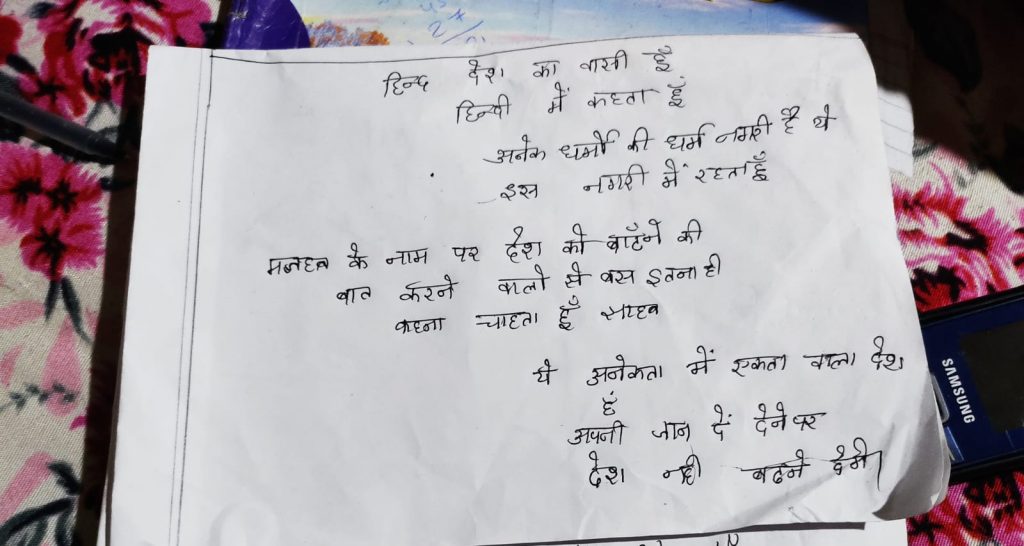 हिन्द देश का वासी हूँ
हिन्दी में कहता हूँ
अनेक धर्मो की धर्म नगरी है ये
इस नगरी में रहता हूँ
मजहब के नाम पर देश को बाँटने की
बात करने वालो से बस इतना ही
कहना चाहता हूँ साहब
ये अनेकता में एकता वाला देश
हैं
अपनी जान दें देने पर
देश नही बटने देगे।
SAMSUNG